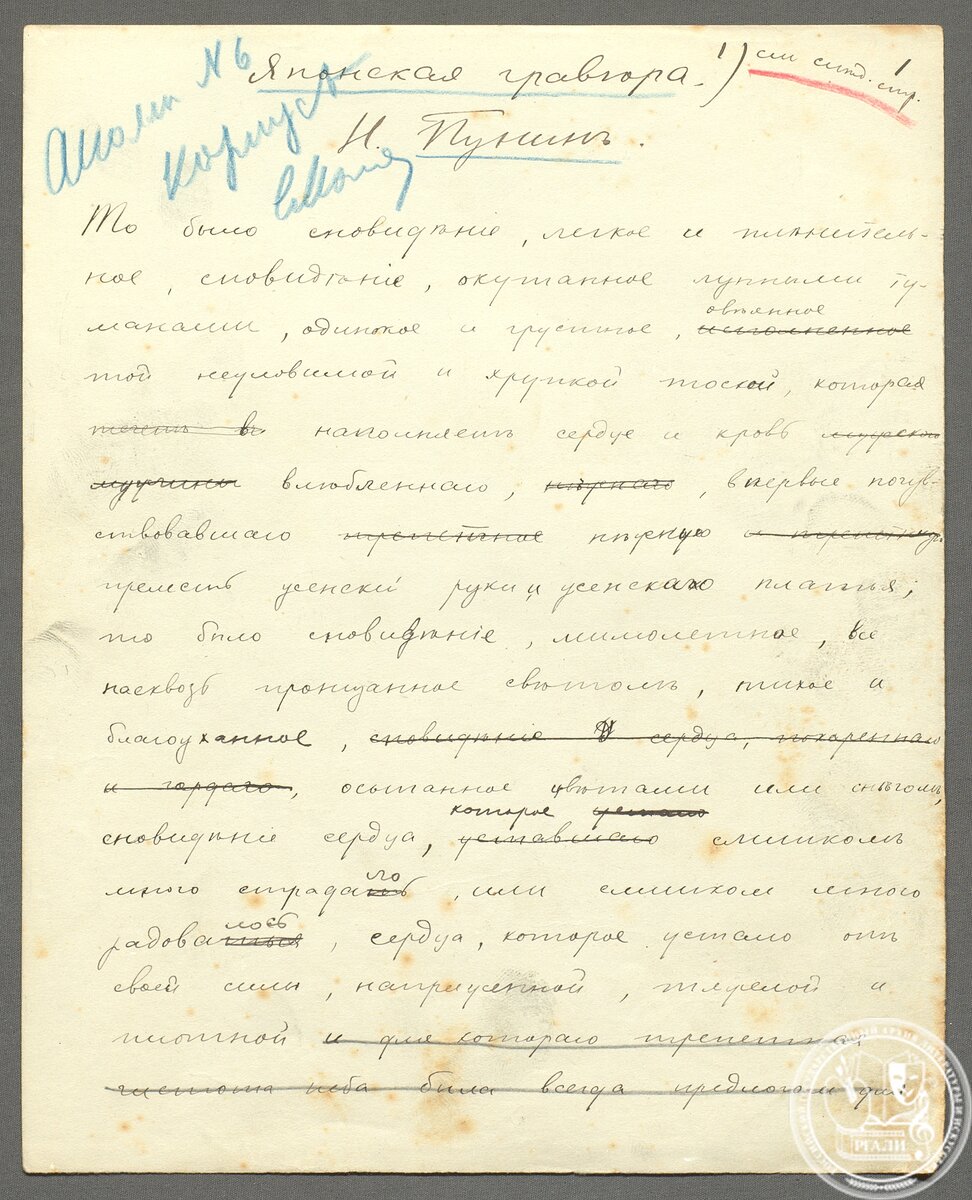 Аполлон № 6
Японская гравюра. 1) 1
Корпус
Н. Пунинъ.
То было сновидѣніе, легкое и плѣнитель-
ное, сновидѣніе, окутанное лунными ту-
манами, одинокое и грустное, овѣянное исполненное
той неуловимой и хрупкой тоской, которая
наполняетъ сердце и кровь
мужчины влюбленнаго, нѣрнаго, впервые почув-
ствовавшаго нѣжную
прелесть женской руки и женскаго платья;
то было сновидѣніе, мимолетное, все
насквозь пронизанное свѣтомъ, тихое и
благоуханное, сновидѣніе сердца, покореннаго
и гордаго, осыпанное цвѣтами или снѣгомъ,
сновидѣніе сердца, которое устало уставшаго слишкомъ
много страдало, или слишком много
радовалось, сердца, которое устало отъ
своей силы, напряженной, тяжелой и
плотной и для котораго трепетная
чистота неба была всегда предлогом для
РГАЛИ